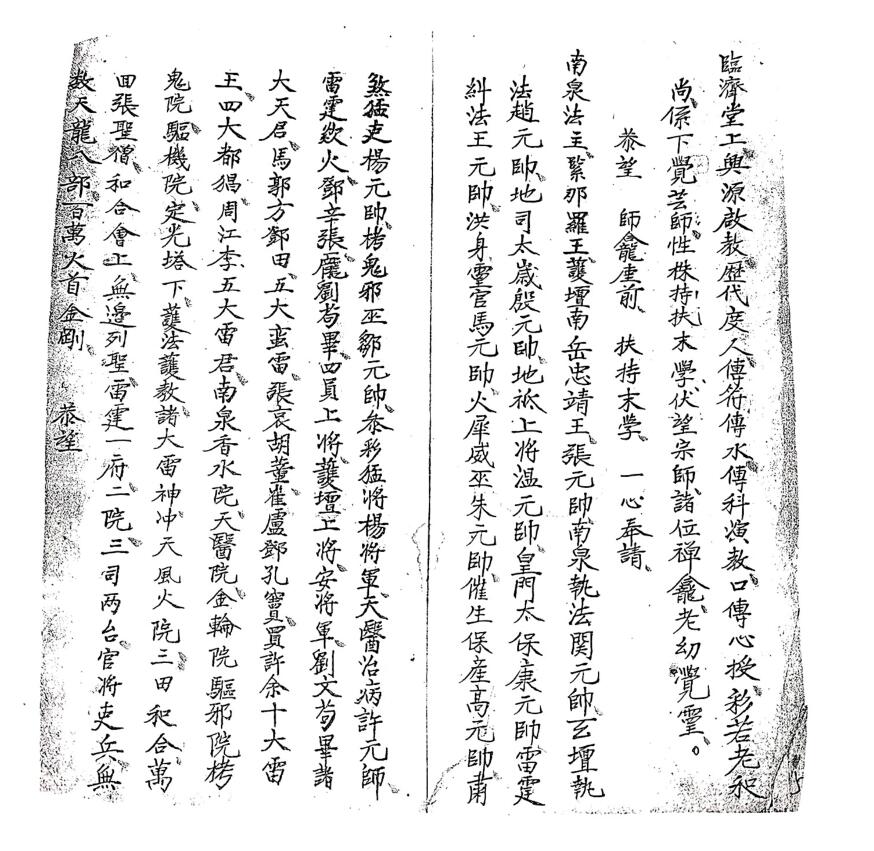 臨濟堂上興源啟教歷代度人傳符傳水傳科演教口傳心授彩若老和
尚係下覺芸師性株持扶末學伏望宗師諸位禪龕老幼覺靈。
恭望 師龕座前 扶持末學 一心奉請
南泉法主緊那羅王護壇南岳忠靖王張元帥南泉執法関元帥玄壇執
法趙元帥地司太歲殷元帥地祇上將溫元帥皇門太保康元帥雷霆
糾法王元帥洪身霻官馬元帥火犀威巫朱元帥催生保產高元帥肅
煞猛吏楊元帥栲鬼邪巫鄒元帥叅彩猛將楊將軍天醫治病許元師
雷霆欻火鄧辛張龐劉苟畢四員上將護壇上將安將軍劉文苟畢諸
大天君馬郭方鄧田五大蛮雷張袁胡董崔盧鄧孔竇買許余十大雷
王四大都猖周江李五大雷君南泉香水院天醫院金輪院驅邪院栲
鬼院驅機院定光塔下護法護教諸大雷神冲天風火院三田和合萬
回張聖僧和合會上無邉列聖雷霆一府二院三司两台官將吏兵無
数天龍八部百萬火首金剛 恭望